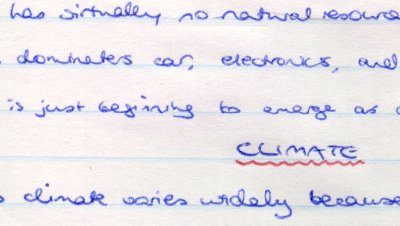 has virtually no natural resource
dominates car, electronics, and
is just begining to emerge as
CLIMATE
climate varies widely because